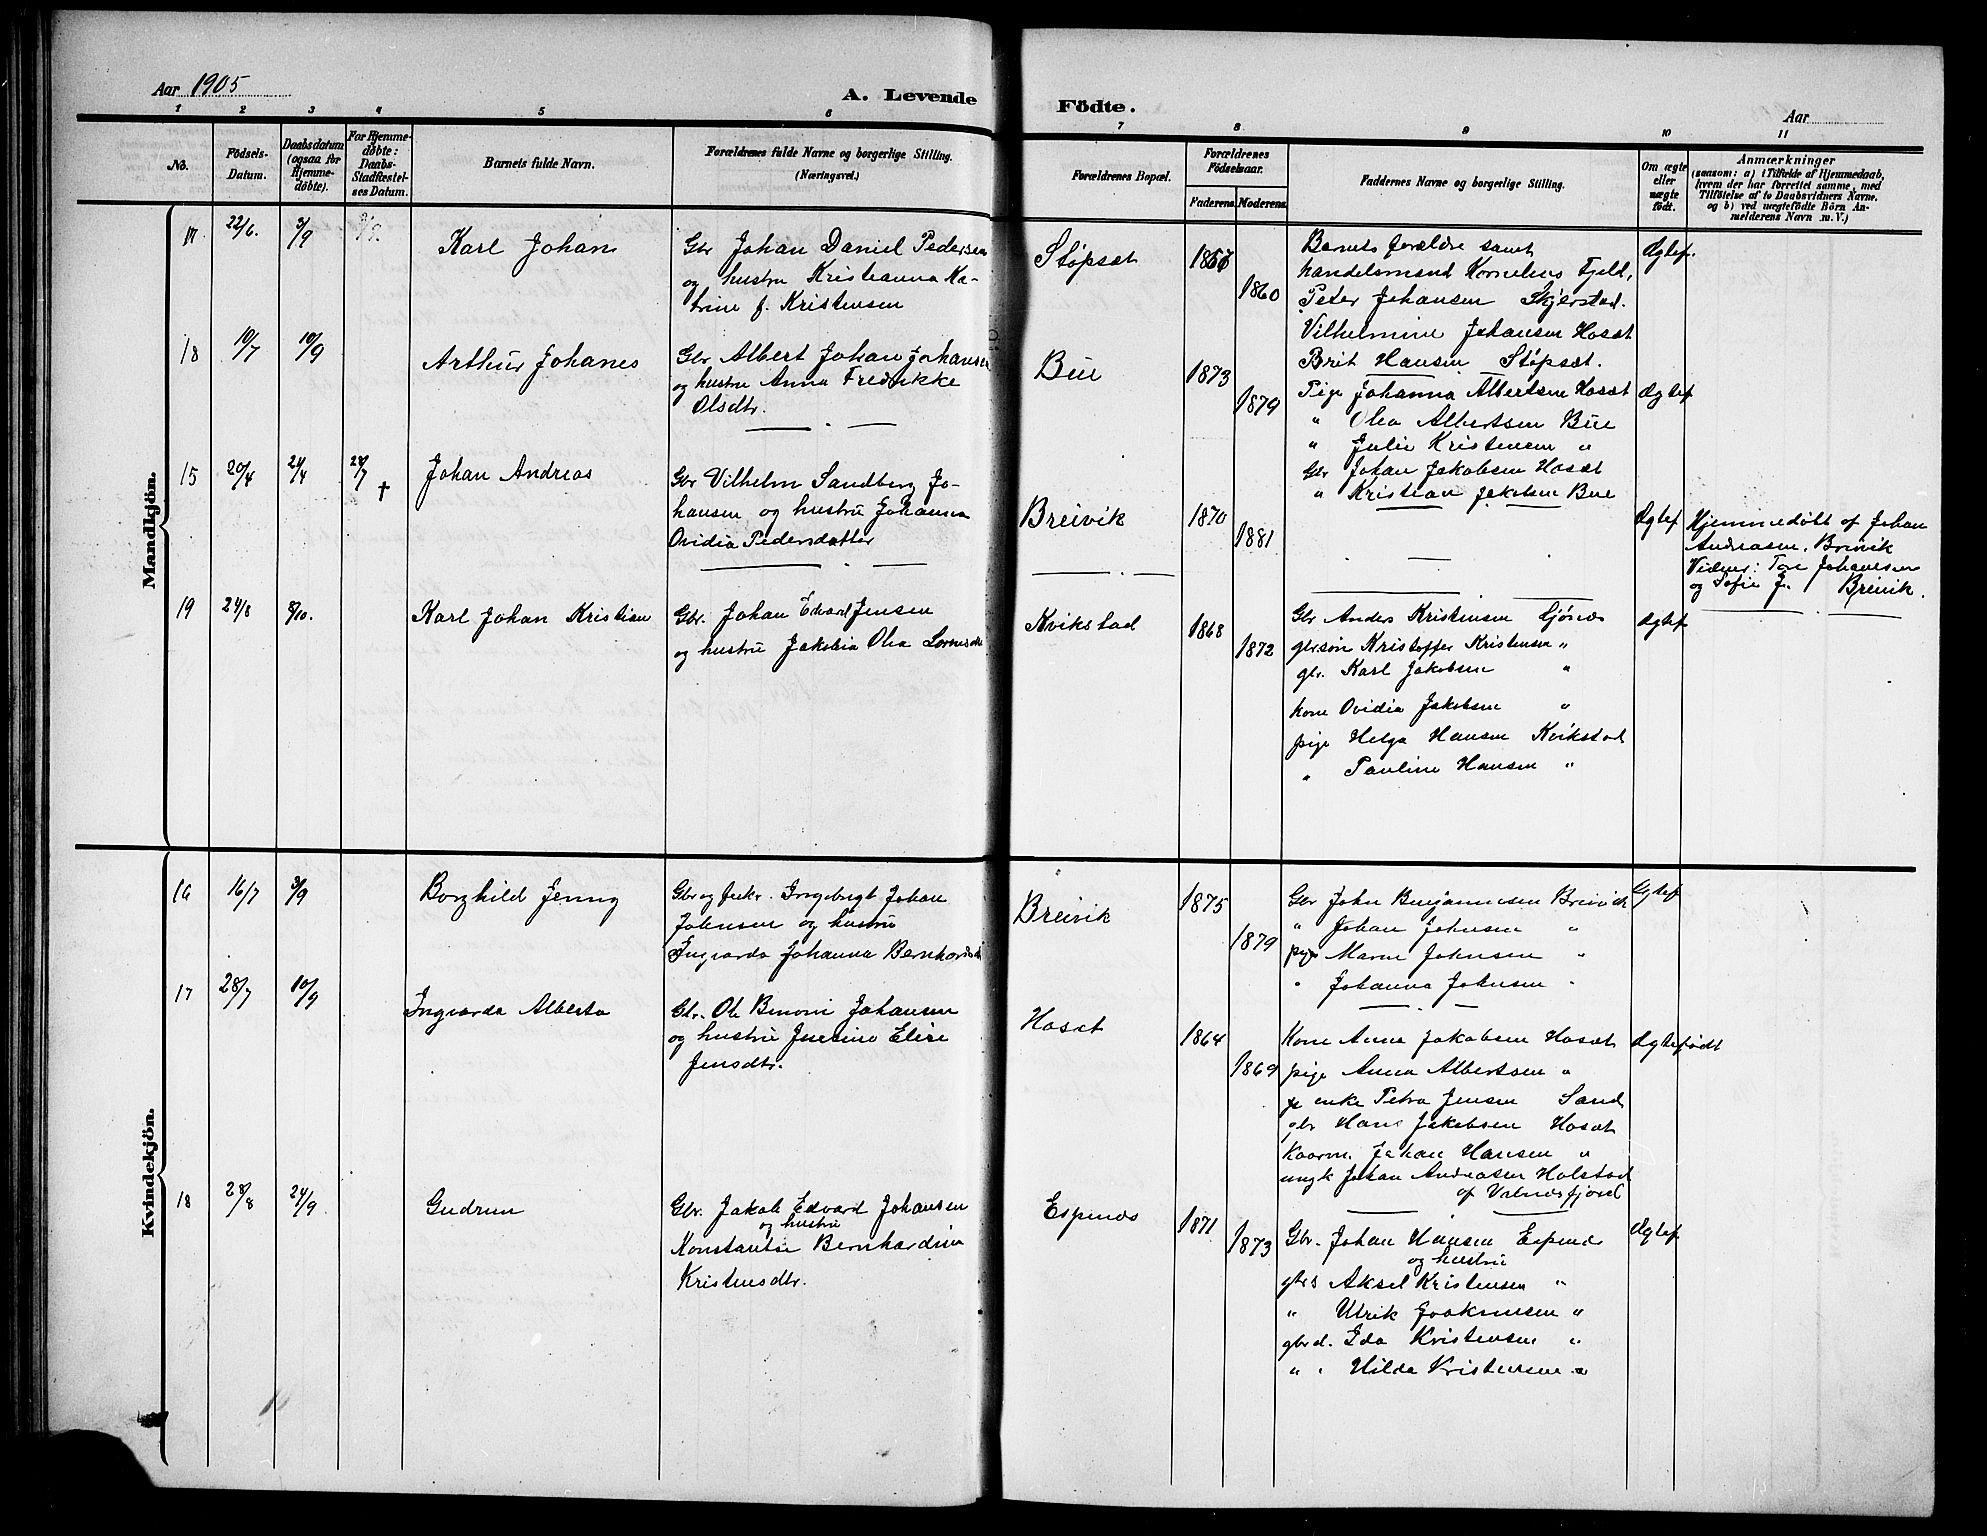 Aar 1905
A. Levende
Födte.
Aar
1 2 3 4 5 6 7 8 9 10 11
No.
Födsels-
Datum.
Daabsdatum
(ogsaa for
Hjemme-
døbte).
For Hjemme-
døbte:
Daabs-
Stadfæstel-
ses Datum.
Barnets fulde Navn.
Forældrenes fulde Navne og borgerlige Stilling.
(Næringsvei.)
Forældrenes Bopæl.
Forældrenes
Födselsaar.
Faderens.
Moderens.
Faddernes Navne og borgerlige Stilling.
Om ægte
eller
uægte
födt.
Anmærkninger
(saasom: a) i Tilfælde af Hjemmedaab,
hvem der har forrettet samme, med
Tilföielse af to Daabsvidners Navne.
og b) ved uægtefödte Börn An-
melderens Navn m. V.)
Mandkjön.
17 22/6. 3/9
Karl Johan
Gbr Johan Daniel Pedersen
og hustru Kristianna Ka-
trine f. Kristensen
Støpset
1860
Barnets forældre samt
handelsmand Kornelius Fjeld,
Peter Johansen Skjerstad.
Vilhelmine Johansen Hoset
Brit Hansen Støpset.
Ægtef.
18 10/7 10/9
Arthur Johanes
Gbr Albert Johan Johansen
og hustru Anna Fredrikke
Olsdtr.
Bue
1873
1879
Pige Johanna Albertsen Hoset
" Olea Albertsen Bue
" Julie Kristensen "
Gbr Johan Jakobsen Hoset
" Kristian Jakobsen Bue
Ægtef
15 20/4 24/4 24/7 †
Johan Andreas
Gbr Vilhelm Sandberg Jo-
hansen og hustru Johanna
Ovidia Pedersdatter
Breivik
1870
1881
Ægtef
Hjemmedøbt af Johan
Andreasen, Breivik
Vidner: Tore Johansen
og Sofie J. Breivik.
19 24/8 8/10.
Karl Johan Kristian
Gbr. Johan Edvard Jensen
og hustru Jakobia Olea
Kvikstad
1868
1872
Gbr Anders Kristensen Ljønes
gbrsøn Kristoffer Kristensen "
gbr. Karl Jakobsen "
kone Ovidia Jakobsen "
pige Helga Hansen Kvikstad
" Pauline Hansen "
Ægtef
Kvindekjön.
16 16/7 3/9
Borghild Jenny
Gbr og Ingebrigt Johan
Johnsen og hustru
Ingvarda Johanna Bernhardsd
Breivik
1875
1879
Gbr John Benjaminsen Breivik
" Johan Johnsen "
pige Maren Johnsen "
" Johanna Johnsen "
Ægtef
17 28/7 10/9
Ingvarda Alberta
Gbr. Ole Benoni Johansen
og hustru Elise
Jensdtr.
Hoset
1864
1869
Kone Anna Jakobsen Hoset
pige Anna Albertsen "
enke Petra Jensen Sand
gbr Hans Jakobsen Hoset
Kaarm. Johan Hansen "
ungk Johan Andreasen Holstad
af Valnesfjord
Ægtefødt
18 28/8 24/9
Gudrun
Gbr. Jakob Edvard Johansen
og hustru
Konstantse Bernhardine
Kristensdtr.
Espenes
1871
1873
Gbr. Johan Hansen Espenes
og hustru
gbrs Aksel Kristensen "
" Ulrik Joakimsen "
gbrd. Ida Kristensen "
" " Hilda Kristensen "
Ægtef